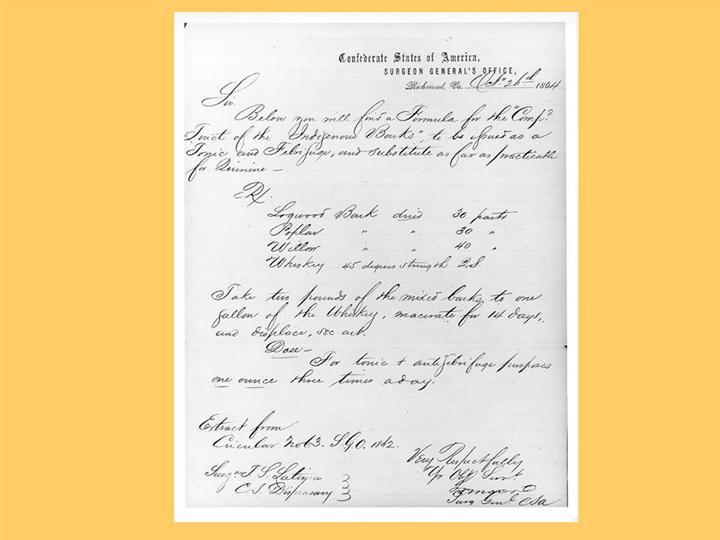 Confederate States of America,
SURGEON GENERAL'S OFFICE,
Richmond, Va. Oct. 26th 1864
Sir.
Below you will find a Formula for the "Comp.
Tinct of the Indigenous Barks", to be issued as a
Tonic and Febrifuge, and substitute as far as practicable
for Quinine —
Rx.
Logwood Bark dried 30 parts
Poplar " " 30 "
Willow " " 40 "
Whiskey 45 degrees strength Q.S.
Take two pounds of the mixed barks to one
gallon of the Whiskey, macerate for 14 days,
and displace, sec. art.
Dose —
For tonic & antifebrifuge purposes
one ounce three times a day.
Extract from
Circular No 63. S.G.O. 1862.
Very Respectfully
Yr Obt Servt
Surgn T. S. Latimer
C. S. Dispensary
Surg Genl CSA